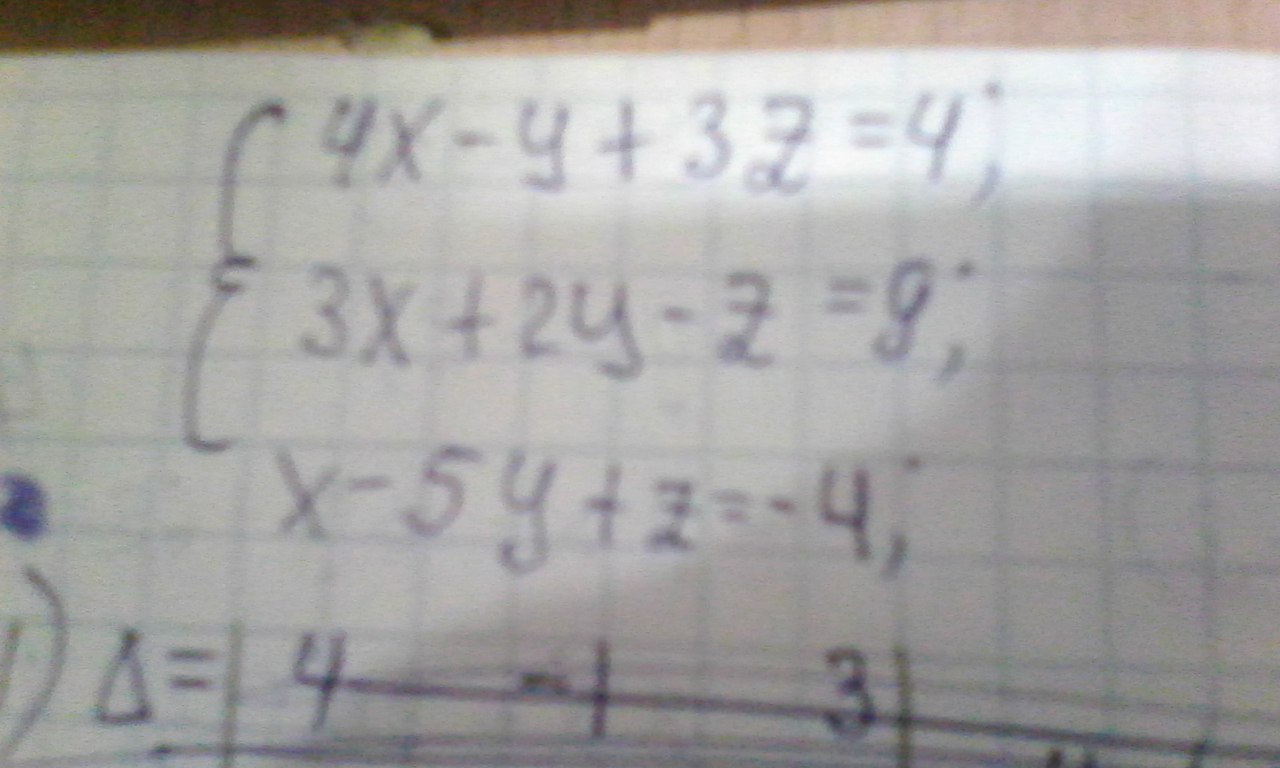 4x-y+3z=4;
3x+2y-z=9;
x-5y+z=-4;
1) Δ=| 4 -1 3 |